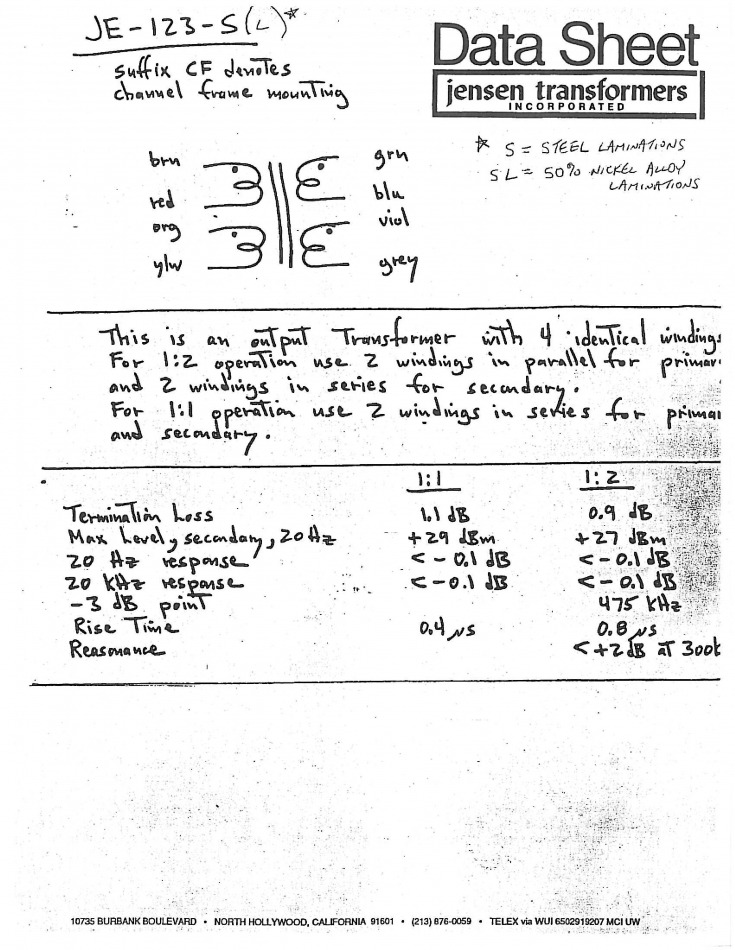 JE-123-S(L)*
suffix CF denotes
channel frame mounting
Data Sheet
jensen transformers
INCORPORATED
* S = STEEL LAMINATIONS
SL = 50% NICKEL ALLOY
LAMINATIONS
brn grn
red blu
org viol
ylw grey
This is an output Transformer with 4 identical windings
For 1:2 operation use 2 windings in parallel for primar
and 2 windings in series for secondary.
For 1:1 operation use 2 windings in series for primar
and secondary.
1:1 1:2
Termination Loss 1.1 dB 0.9 dB
Max Level, secondary, 20 Hz +29 dBm +27 dBm
20 Hz response <-0.1 dB <-0.1 dB
20 kHz response <-0.1 dB <-0.1 dB
-3 dB point 475 kHz
Rise Time 0.4 µs 0.8 µs
Reasonance <+2 dB at 300k
10735 BURBANK BOULEVARD • NORTH HOLLYWOOD, CALIFORNIA 91601 • (213) 876-0059 • TELEX via WUI 6502919207 MCI UW